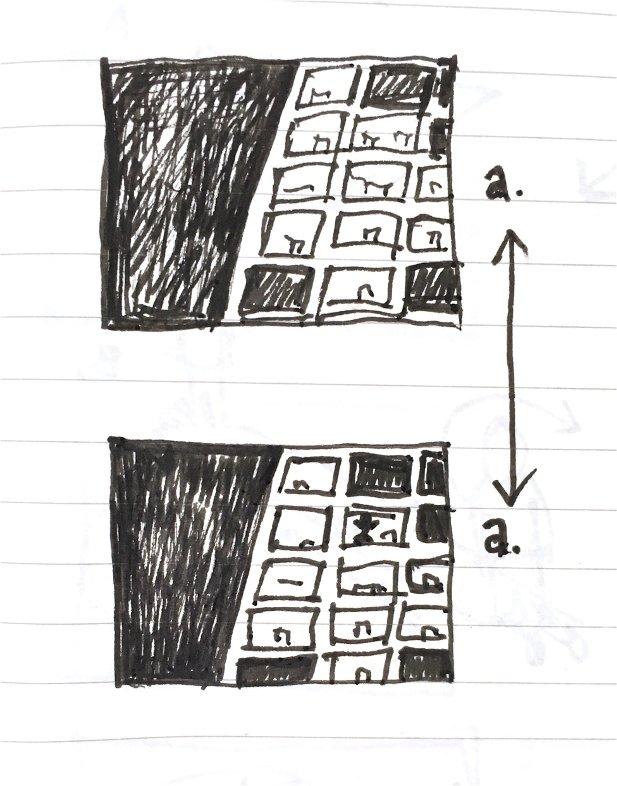 a.
a.